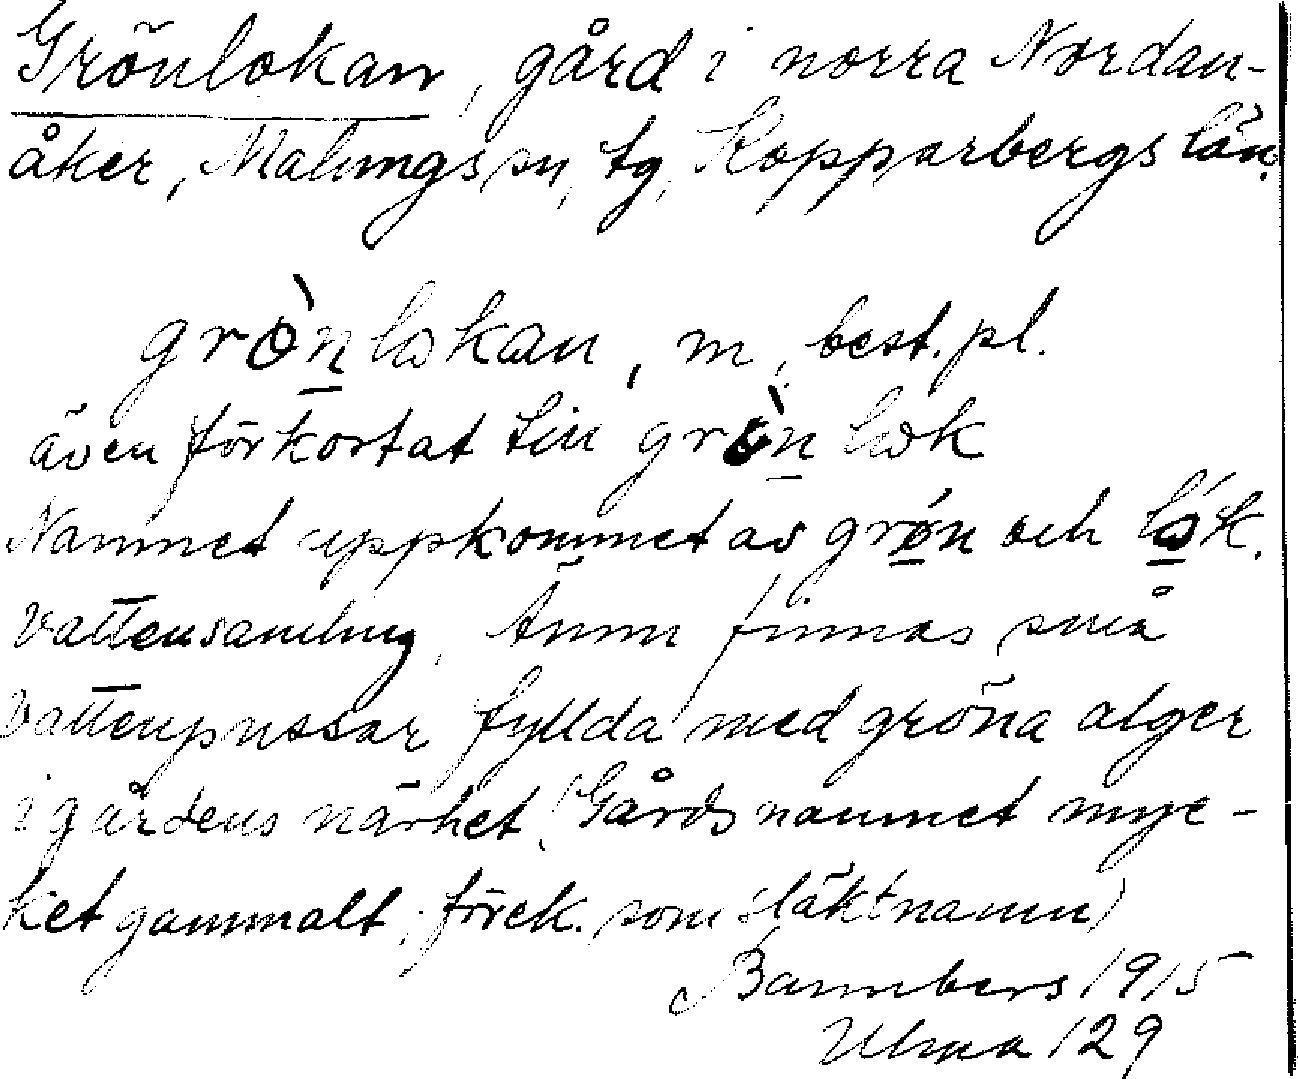 Grönlokan, gård i norra Nordan-
åker, Malungs sn, tg, Kopparbergs län.
grò̱nlokan, m, best. pl.
även förkortat till grò̱nlok
Namnet uppkommet av grön och lók.
vattensamling. Ännu finnas små
vattenpussar fyllda med gröna alger
i gårdens närhet. (Gårdsnamnet myc-
ket gammalt, förek. som släktnamn)
Bannbers 1915
Ulma 129